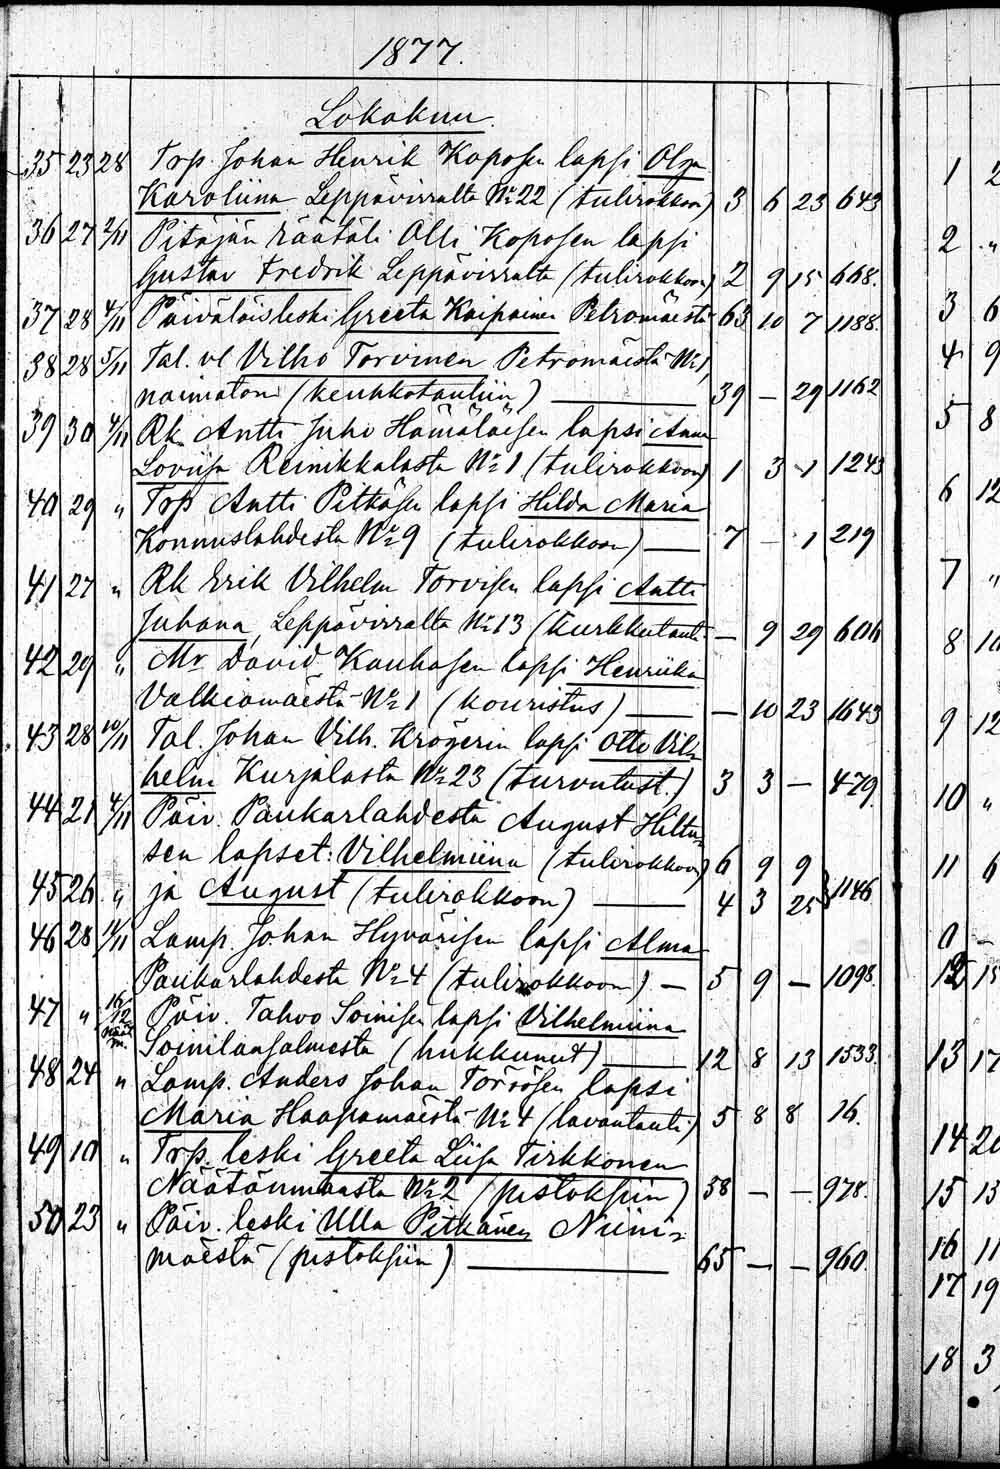 1877.
Lokakuu.
35 23 28 Trp. Johan Henrik Koposen lapsi Olga
Karoliina Leppävirralta No 22 (tulirokkoon) 3 6 23 643
36 27 2/11 Pitäjän räätäli Olli Koposen lapsi
Gustav Fredrik Leppävirralta (tulirokkoon) 2 9 15 668.
37 28 4/11 Päiväläisleski Greeta Kaipainen Petromäestä 63 10 7 1188.
38 28 5/11 Tal. vl Vilho Torvinen Petromäestä No 1,
naimaton (keuhkotautiin) — 39 — 29 1162
39 30 4/11 Rk. Antti Juho Hämäläisen lapsi Anna
Loviisa Reinikkalasta No 1 (tulirokkoon) 1 3 1 1243
40 29 " Trp Antti Pitkäsen lapsi Hilda Maria
Konnuslahdesta No 9 (tulirokkoon) — 7 — 1 219
41 27 " Rk Erik Vilhelm Torvisen lapsi Antti
Juhana, Leppävirralta No 13 (kurkkutauti — 9 29 606
42 29 " Mr David Kauhasen lapsi Henriika
Valkiamäestä No 1 (kouristus) — — 10 23 1643
43 28 10/11 Tal. Johan Vilh. Krögerin lapsi Otto Vil-
helm Kurjalasta No 23 (turvutust.) 3 3 — 479.
44 21 4/11 Päiv. Paukarlahdesta August Hiltu-
sen lapset: Vilhelmiina (tulirokkoon) 6 9 9
45 26 " ja August (tulirokkoon) — 4 3 25 } 1146
46 28 11/11 Lamp. Johan Hyvärisen lapsi Alma
Paukarlahdesta No 4 (tulirokkoon) — 5 9 — 1098.
47 " 16/12 Päiv. Tahvo Soinisen lapsi Vilhelmiina
Soinilansalmesta (hukkunut) — 12 8 13 1533.
48 24 " Lamp. Anders Johan Törrösen lapsi
Maria Haapamäestä No 4 (lavantauti) 5 8 8 16.
49 10 " Trp. leski Greeta Liisa Tirkkonen
Näätänmaasta No 2 (pistoksiin) 58 — — 978.
50 23 " Päiv. leski Ulla Pitkänen Niini-
mäestä (pistoksiin) — 65 — — 960.
1 2
2 "
3 6
4 9
5 8
6 12
7 "
8 10
9 12
10 "
11 6
12 15
13 17
14 20
15 13
16 11
17 19
18 3